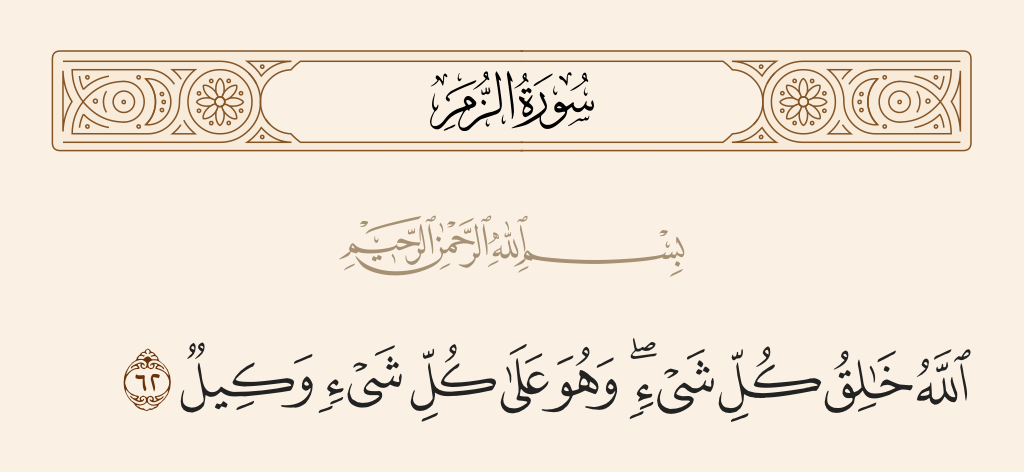 سُورَةُ الزُّمَرِ
بِسْمِ ٱللَّهِ ٱلرَّحْمَٰنِ ٱلرَّحِيمِ
ٱللَّهُ خَٰلِقُ كُلِّ شَىْءٍۢ ۖ وَهُوَ عَلَىٰ كُلِّ شَىْءٍۢ وَكِيلٌۭ ٦٢